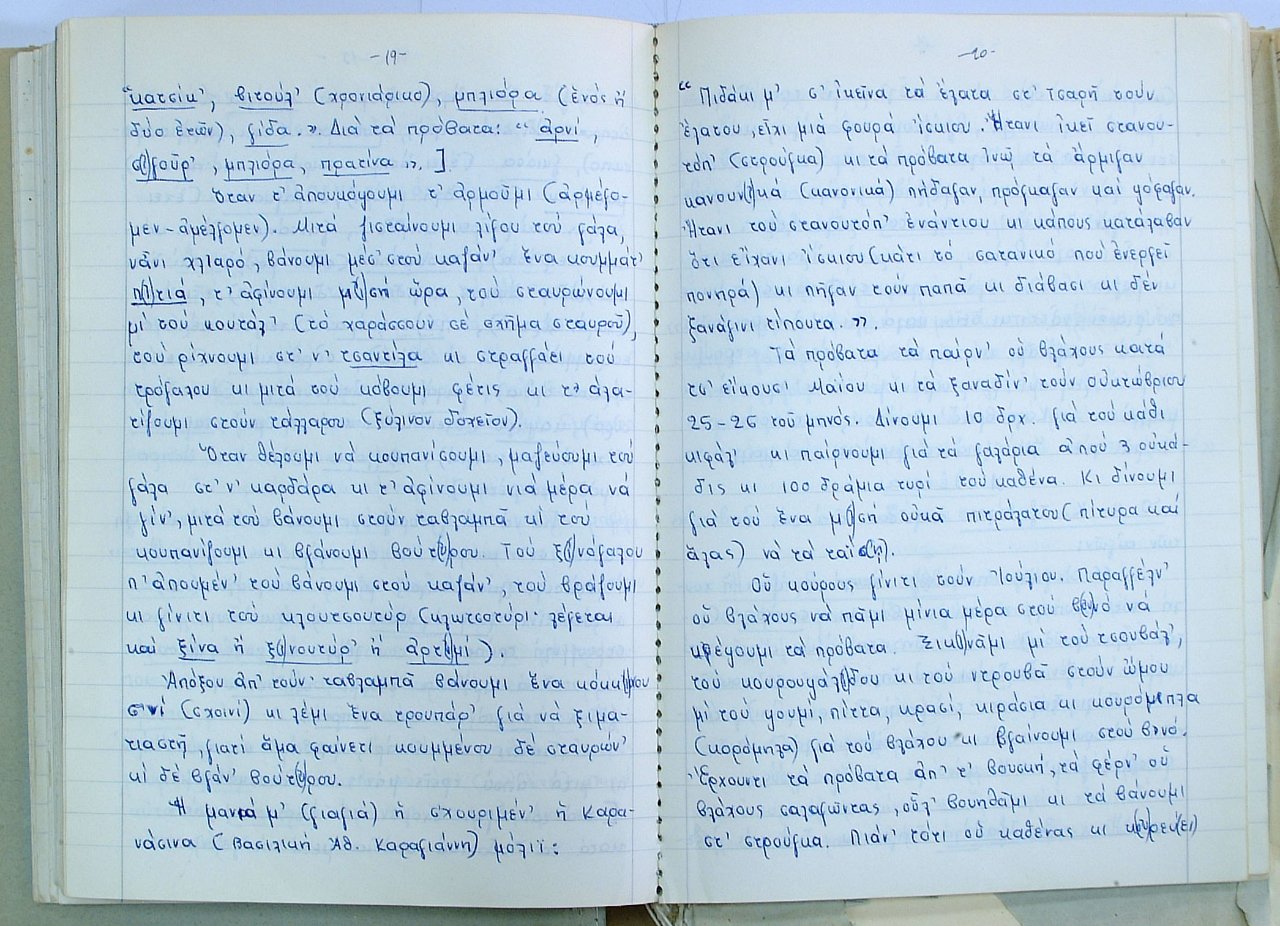 -19-
"κατσίκ', βιτούλ' (χρονιάρικο), μπλιόρα (ἑνός ἤ
δύο ἐτῶν), γίδα.». Διά τά πρόβατα: "ἀρνί,
ζ(υ)γοῦρ', μπλιόρα, πρατίνα». ].
Ὅταν τ' ἀπουκόψουμι τ' ἀρμοῦμι (ἀρμέγο-
μεν - ἀμέλγομεν). Μιτά ζισταίνουμι λίγου τοὐ γάλα,
νἆνι χλιαρό, βάνουμι μέσ' στοὐ καζάν' ἕνα κουμμάτ'
π(ι)τιά, τ' ἀφίνουμι μ(ι)σή ὥρα, τοὐ σταυρώνουμι
μί τοὐ κουτάλ' (τό χαράσσουν σέ σχῆμα σταυροῦ),
τοὐ ρίχνουμι στ' ν' τσαντίλα κι στραγγάει τοὐ
τρόβαλου κι μιτά τοὐ κόβουμι φέτις κι τ' ἀλα-
τίζουμι στούν τάλλαρου (ξύλινον δοχεῖον).
Ὅταν θέλουμι νά κουπανίσουμι, μαζεύουμι τοὐ
γάλα στ' ν' καρδάρα κι τ' ἀφίνουμι νιά μέρα νά
γίν', μιτά τοὐ βάνουμι στούν ταβλαμπᾶ κί τοὐ
κουπανίζουμι κι βγάνουμι βούτ(υ)ρου. Τοὐ ξ(ι)νόγαλου
π' ἀπουμέν' τοὐ βάνουμι στοὐ καζάν' τοὐ βράζουμι
κι γίνιτι τοὐ κλουτσουτύρ (κλωτσοτύρι· λέγεται
καί ξίνα ἤ ξ(ι)νουτύρ' ἤ ἀρτ(υ)μή).
Ἀπόξου ἀπ' τούν ταβλαμπᾶ βάνουμι ἕνα κόκκ(ι)νου
σ'νί (σχοινί) κι λέμι ἕνα τρουπάρ' γιά νά ξιμα-
τιαστῆ, γιατί ἅμα φαίνετι κουμμένου δέ σταυρών'
κί δέ βγάν' βούτ(υ)ρου.
Ἡ μανιά μ' (γιαγιά) ἡ σχουριμέν' ἡ Καρα-
νάσινα (Βασιλική Ἀθ. Καραγιάννη) μόλιϊ:
-20-
"Πιδάκι μ' σ' ἰκεῖνα τά ἔλατα στ' Τσαρῆ τούν
ἔλατου, εἶχι μιά φουρά ἴσκιου. Ἤτανι ἰκεῖ στανου-
τόπ' (στρούγκα) κι τά πρόβατα ἰνῶ τά ἄρμιγαν
κανουν(ι)κά (κανονικά) πήδαγαν, πρόγκαγαν καί ψόφαγαν.
Ἤτανι τοὐ στανουτόπ' ἐνάντιου κι κάπους κατάλαβαν
ὅτι εἴχανι ἴσκιου (κάτι τό σατανικό πού ἐνεργεῖ
πονηρά) κι πῆγαν τούν παπᾶ κι διάβασι κι δέν
ξανάγινι τίπουτα.».
Τά πρόβατα τά παίρν' οὐ βλάχους κατά
τσ' εἴκουσι Μαΐου κι τά ξαναδίν' τούν Οὐκτώβριου
25-26 τοῦ μηνός. Δίνουμι 10 δρχ. γιά τοὐ κάθι
κιφάλ' κι παίρνουμι γιά τά γαλάρια ἀπού 3 οὐκά-
δις κι 100 δράμια τυρί τοὐ καθένα. Κι δίνουμι
γιά τοὐ ἕνα μ(ι)σή οὐκᾶ πιτράλατου (πίτυρα καί
ἅλας) νά τά ταΐσ(η).
Οὐ κούρους γίνιτι τούν Ἰούλιου. Παραγγέλν'
οὐ βλάχους νά πᾶμι μίνια μέρα στοὐ β(ου)νό νά
κ'ρέψουμι τά πρόβατα. Ξικ(ι)νᾶμι μί τοὐ τσουβάλ',
τοὐ κουρουψάλ(ι)δου κι τοὐ ντρουβᾶ στούν ὦμου
μί τοὐ ψουμί, πίττα, κρασί, κιράσια κι κουρόμπλα
(κορόμηλα) γιά τοὐ βλάχου κι βγαίνουμι στοὐ β'νό.
Ἔρχουντι τά πρόβατα ἀπ' τ' βουσκή, τά φέρν' οὐ
βλάχους σαλαγῶντας, οὗλ' βουηθᾶμι κι τά βάνουμι
στ' στρούγκα. Πιάν' τότι οὐ καθένας κι κ(ου)ρεύ(ει)